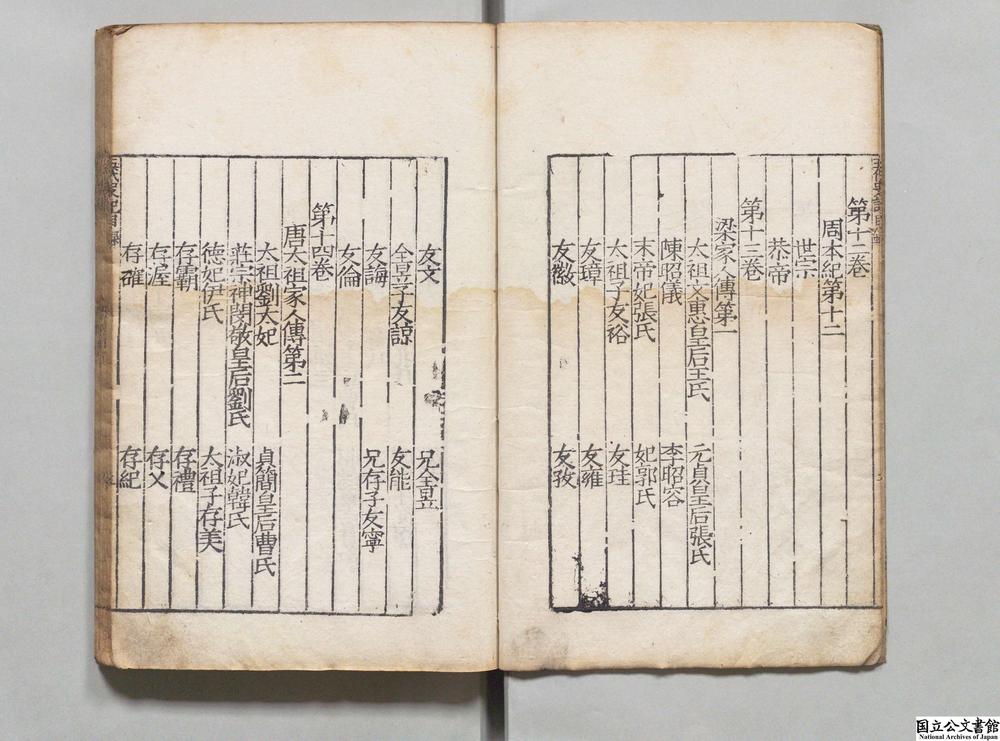 第十二卷
周本紀第十二
世宗
恭帝
第十三卷
梁家人傳第一
太祖文惠皇后王氏 元貞皇后張氏
陳昭儀 李昭容
末帝妃張氏 妃郭氏
太祖子友裕 友珪
友璋 友雍
友徽 友孜
友文 兄全昱
全昱子友諒 友能
友誨 兄存子友寧
友倫
第十四卷
唐太祖家人傳第二
太祖劉太妃 貞簡皇后曹氏
莊宗神閔敬皇后劉氏 淑妃韓氏
德妃伊氏 太祖子存美
存霸 存禮
存渥 存乂
存確 存紀
国立公文書館
National Archives of Japan